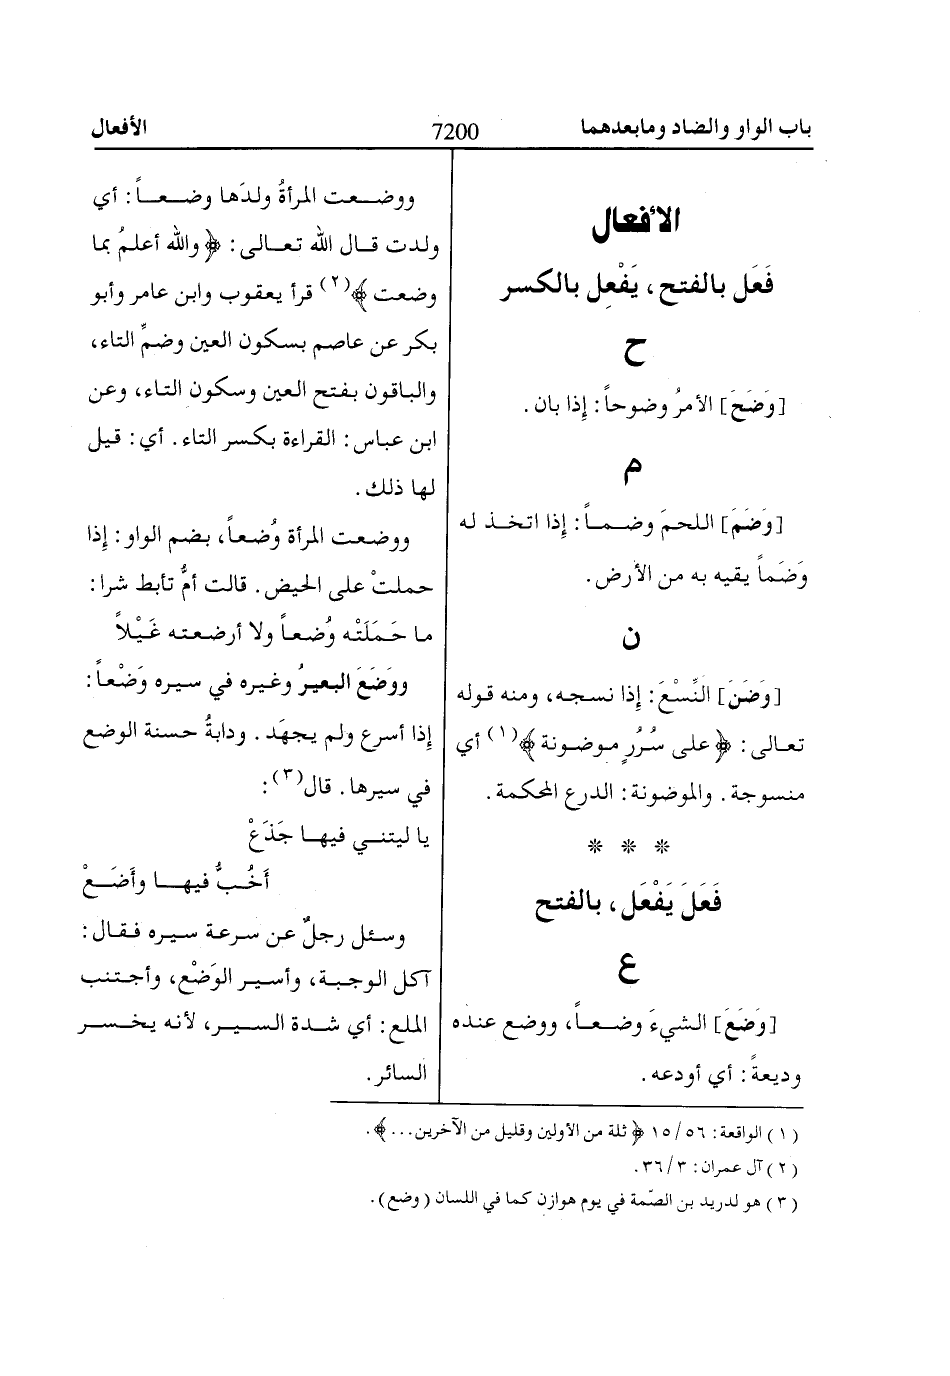 باب الواو والضاد ومابعدهما
7200
الأفعال
الأفعال
فَعَل بالفتح، يَفْعِل بالكسر
ح
[وَضَحَ] الأمرُ وضوحاً: إذا بان.
م
[وَضَمَ] اللحمَ وضماً: إذا اتخذ له
وَضَماً يقيه به من الأرض.
ن
[وَضَنَ] النِّسْعَ: إذا نسجه، ومنه قوله
تعالى: ﴿على سُرُرٍ موضونة﴾(١) أي
منسوجة. والموضونة: الدرع المحكمة.
* * *
فَعَلَ يَفْعَل، بالفتح
ع
[وَضَعَ] الشيءَ وضعاً، ووضع عنده
وديعةً: أي أودعه.
ووضعت المرأةُ ولدَها وضعاً: أي
ولدت قال الله تعالى: ﴿والله أعلمُ بما
وضعت﴾(٢) قرأ يعقوب وابن عامر وأبو
بكر عن عاصم بسكون العين وضمِّ التاء،
والباقون بفتح العين وسكون التاء، وعن
ابن عباس: القراءة بكسر التاء. أي: قيل
لها ذلك.
ووضعت المرأة وُضعاً، بضم الواو: إذا
حملتْ على الحيض. قالت أمُّ تأبط شرا:
ما حَمَلَتْه وُضعاً ولا أرضعته غَيْلاً
ووَضَعَ البعيرُ وغيره في سيره وَضْعاً:
إذا أسرع ولم يجهَد. ودابةُ حسنة الوضع
في سيرها. قال(٣):
يا ليتني فيها جَذَعْ
أَخُبُّ فيها وأَضَعْ
وسئل رجلٌ عن سرعة سيره فقال:
آكل الوجبة، وأسير الوَضْع، وأجتنب
الملع: أي شدة السير، لأنه يخسر
السائر.
(١) الواقعة: ١٥/٥٦ ﴿ثلة من الأولين وقليل من الآخرين...﴾.
(٢) آل عمران: ٣٦/٣.
(٣) هو لدريد بن الصّمة في يوم هوازن كما في اللسان (وضع).